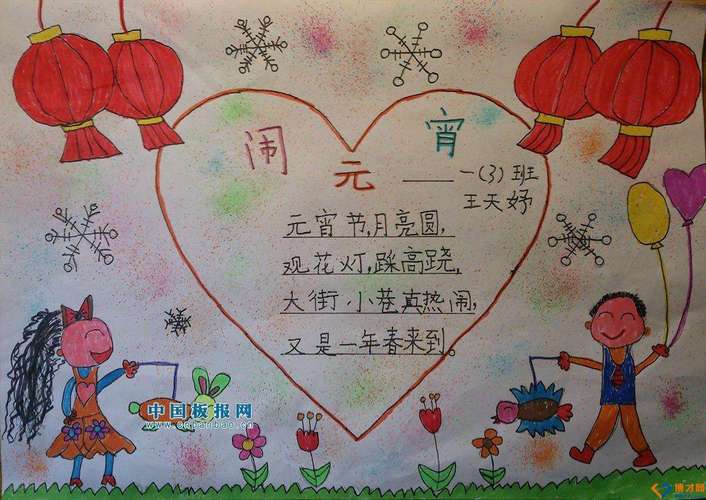 闹元宵
一(3)班
王天妤
元宵节,月亮圆,
观花灯,踩高跷,
大街小巷真热闹,
又是一年春来到。
中国板报网
www.cnbanbao.cn
博才网